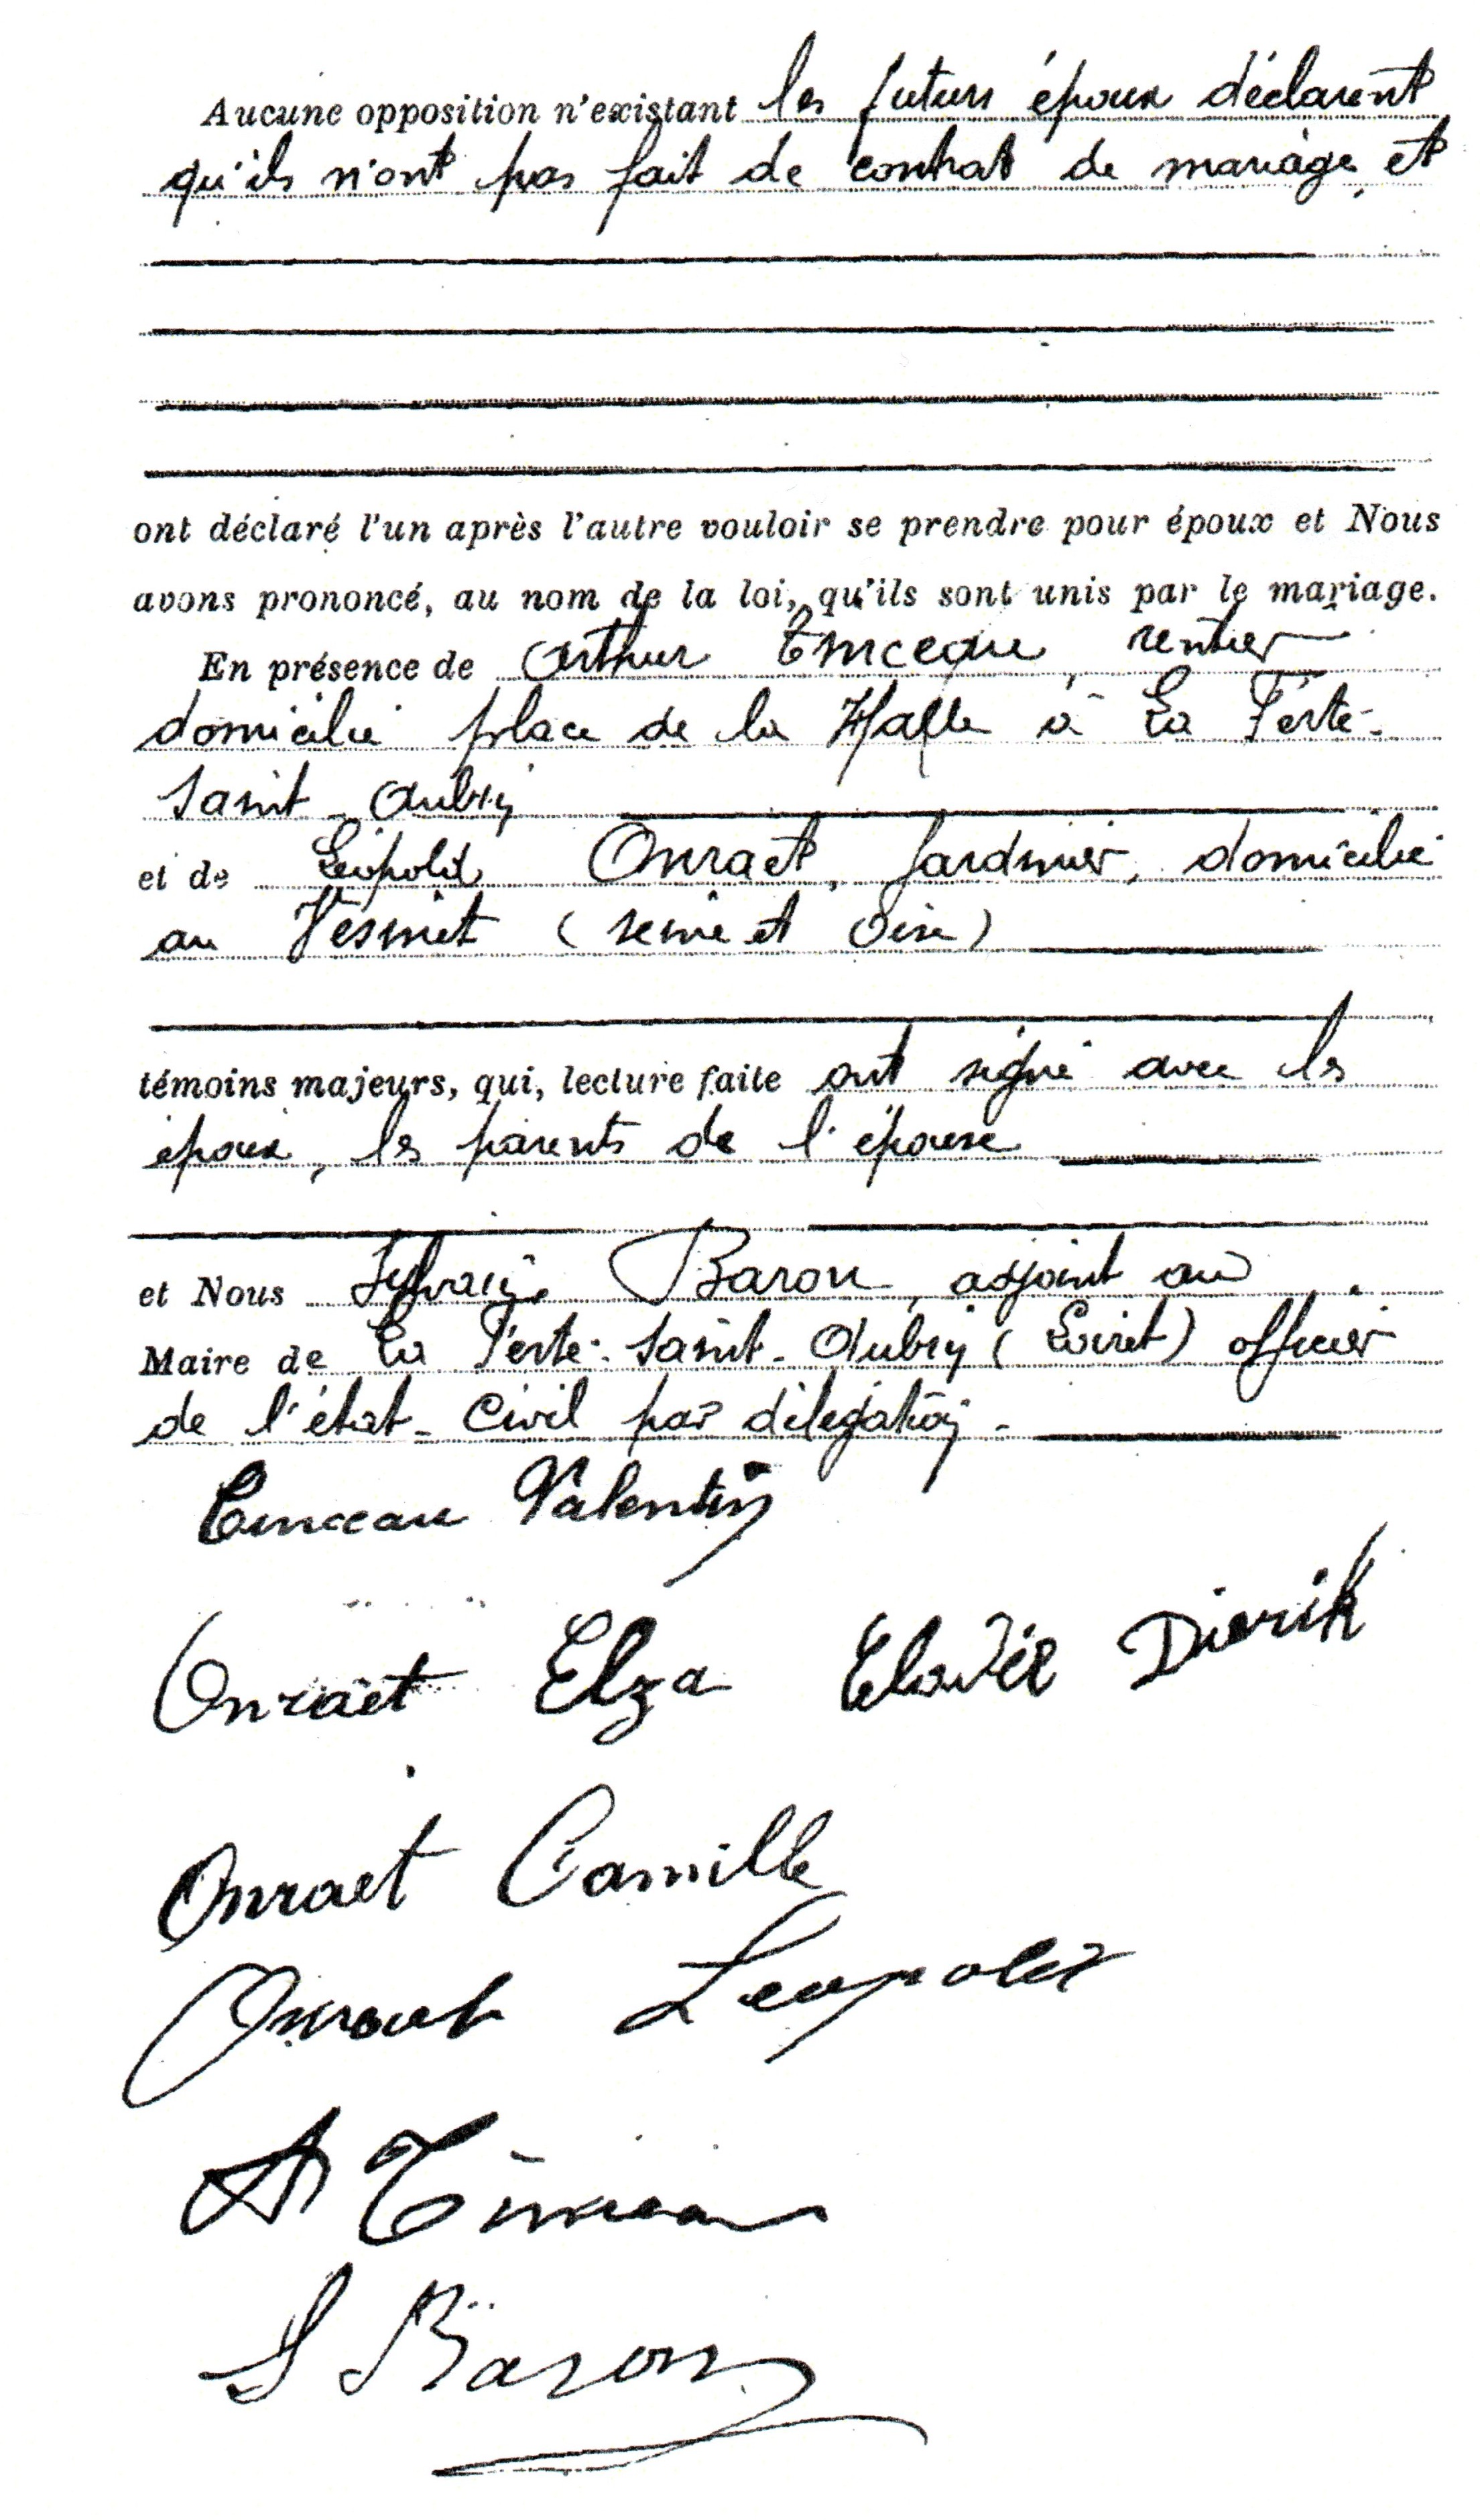 Aucune opposition n'existant les futurs époux déclarent
qu'ils n'ont pas fait de contrat de mariage, et
ont déclaré l'un après l'autre vouloir se prendre pour époux et Nous
avons prononcé, au nom de la loi, qu'ils sont unis par le mariage.
En présence de Arthur Tinceau, rentier
domicilié place de la Halle à La Ferté-
Saint-Aubin
et de Léopold Onraet, Jardinier, domicilié
au Vésinet (Seine et Oise)
témoins majeurs, qui, lecture faite ont signé avec les
époux, les parents de l'épouse
et Nous Sylvain Baron, adjoint au
Maire de La Ferté-Saint-Aubin (Loiret) officier
de l'état-civil par délégation.
Tinceau Valentin
Onraet Elza Elodie Dierik
Onraet Camille
Onraet Leopold
A Tinceau
S Baron